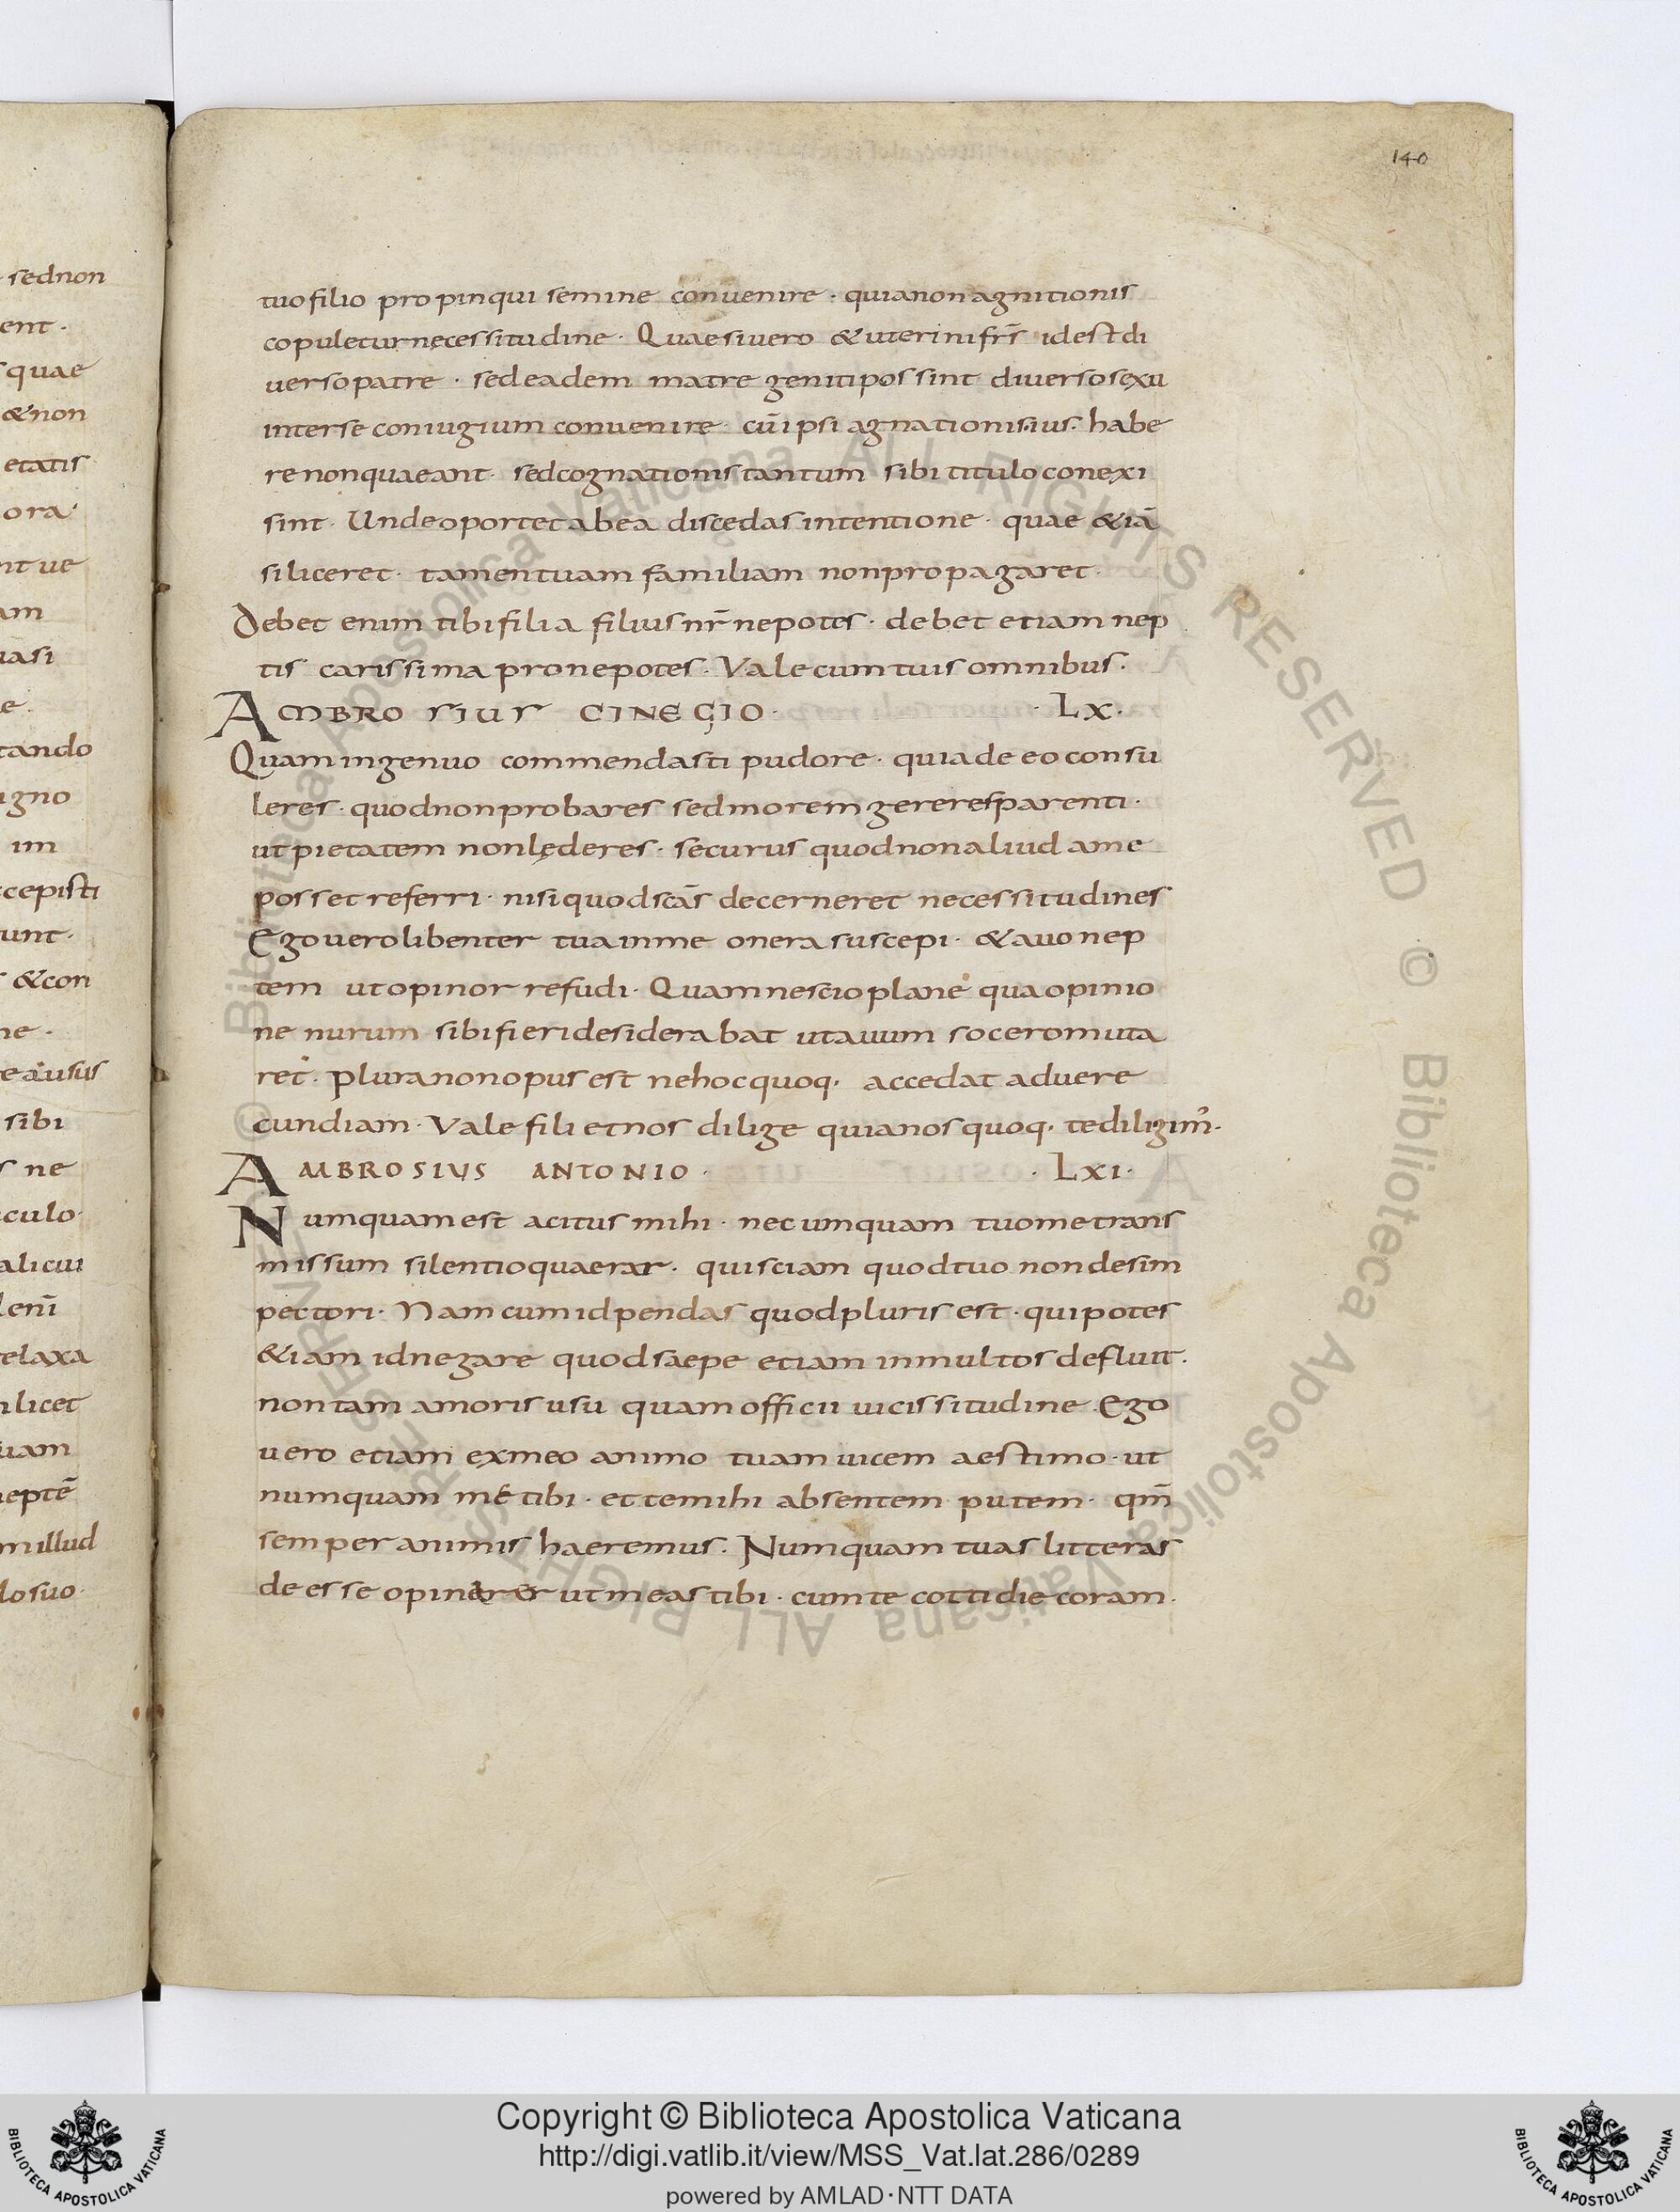 140
sed non
ent ·
quae
& non
etatis
ora
nt ue
am
uasi
e ·
tando
igno
im
cepisti
unt ·
& con
ne ·
e ausus
sibi
s ne
culo ·
alicui
leni
elaxa
licet
uam
neptē
m illud
lo suo ·
tuo filio propinqui semine conuenire · quia non agnitionis
copuletur necessitudine · Quae si uero & uterini frs̄ id est di
uerso patre · sed eadem matre geniti possint diuerso sexu
inter se coniugium conuenire · cū ipsi agnationis ius · habe
re non quaeant · sed cognationis tantum sibi titulo conexi
sint · Unde oportet ab ea discedas intentione · quae &iā
si liceret · tamen tuam familiam non propagaret ·
Debet enim tibi filia filius nr̄ nepotes · debet etiam nep
tis carissima pronepotes · Vale cum tuis omnibus ·
AMBROSIUS CINEGIO · · LX ·
Quam ingenuo commendasti pudore · quia de eo consu
leres · quod non probares sed morem gereres parenti ·
ut pietatem non lęderes · securus quod non aliud a me
posset referri · nisi quod scās decerneret necessitudines
Ego uero libenter tua in me onera suscepi · & auo nep
tem ut opinor refudi · Quam nescio plane qua opinio
ne nurum sibi fieri desiderabat ut auum socero muta
ret · Plura non opus est ne hoc quoq · accedat ad uere
cundiam · Vale fili et nos dilige quia nos quoq · te diligim᾽ ·
AMBROSIUS ANTONIO · · LXI ·
Numquam est acitus mihi · nec umquam tuo me trans
missum silentio quaerar · qui sciam quod tuo non desim
pectori · Nam cum id pendas quod pluris est · qui potes
&iam id negare quod saepe etiam in multos defluit ·
non tam amoris usu quam officii uicissitudine · Ego
uero etiam ex meo animo tuam uicem aestimo · ut
numquam me tibi · et te mihi absentem putem · qm̄
semper animis haeremus · Numquam tuas litteras
deesse opiner ut meas tibi · cum te cottidie coram ·
© Biblioteca Apostolica Vaticana ALL RIGHTS RESERVED © Biblioteca Apostolica Vaticana ALL RIGHTS RESERVED
Copyright © Biblioteca Apostolica Vaticana
http://digi.vatlib.it/view/MSS_Vat.lat.286/0289
powered by AMLAD · NTT DATA
BIBLIOTECA APOSTOLICA VATICANA
BIBLIOTECA APOSTOLICA VATICANA